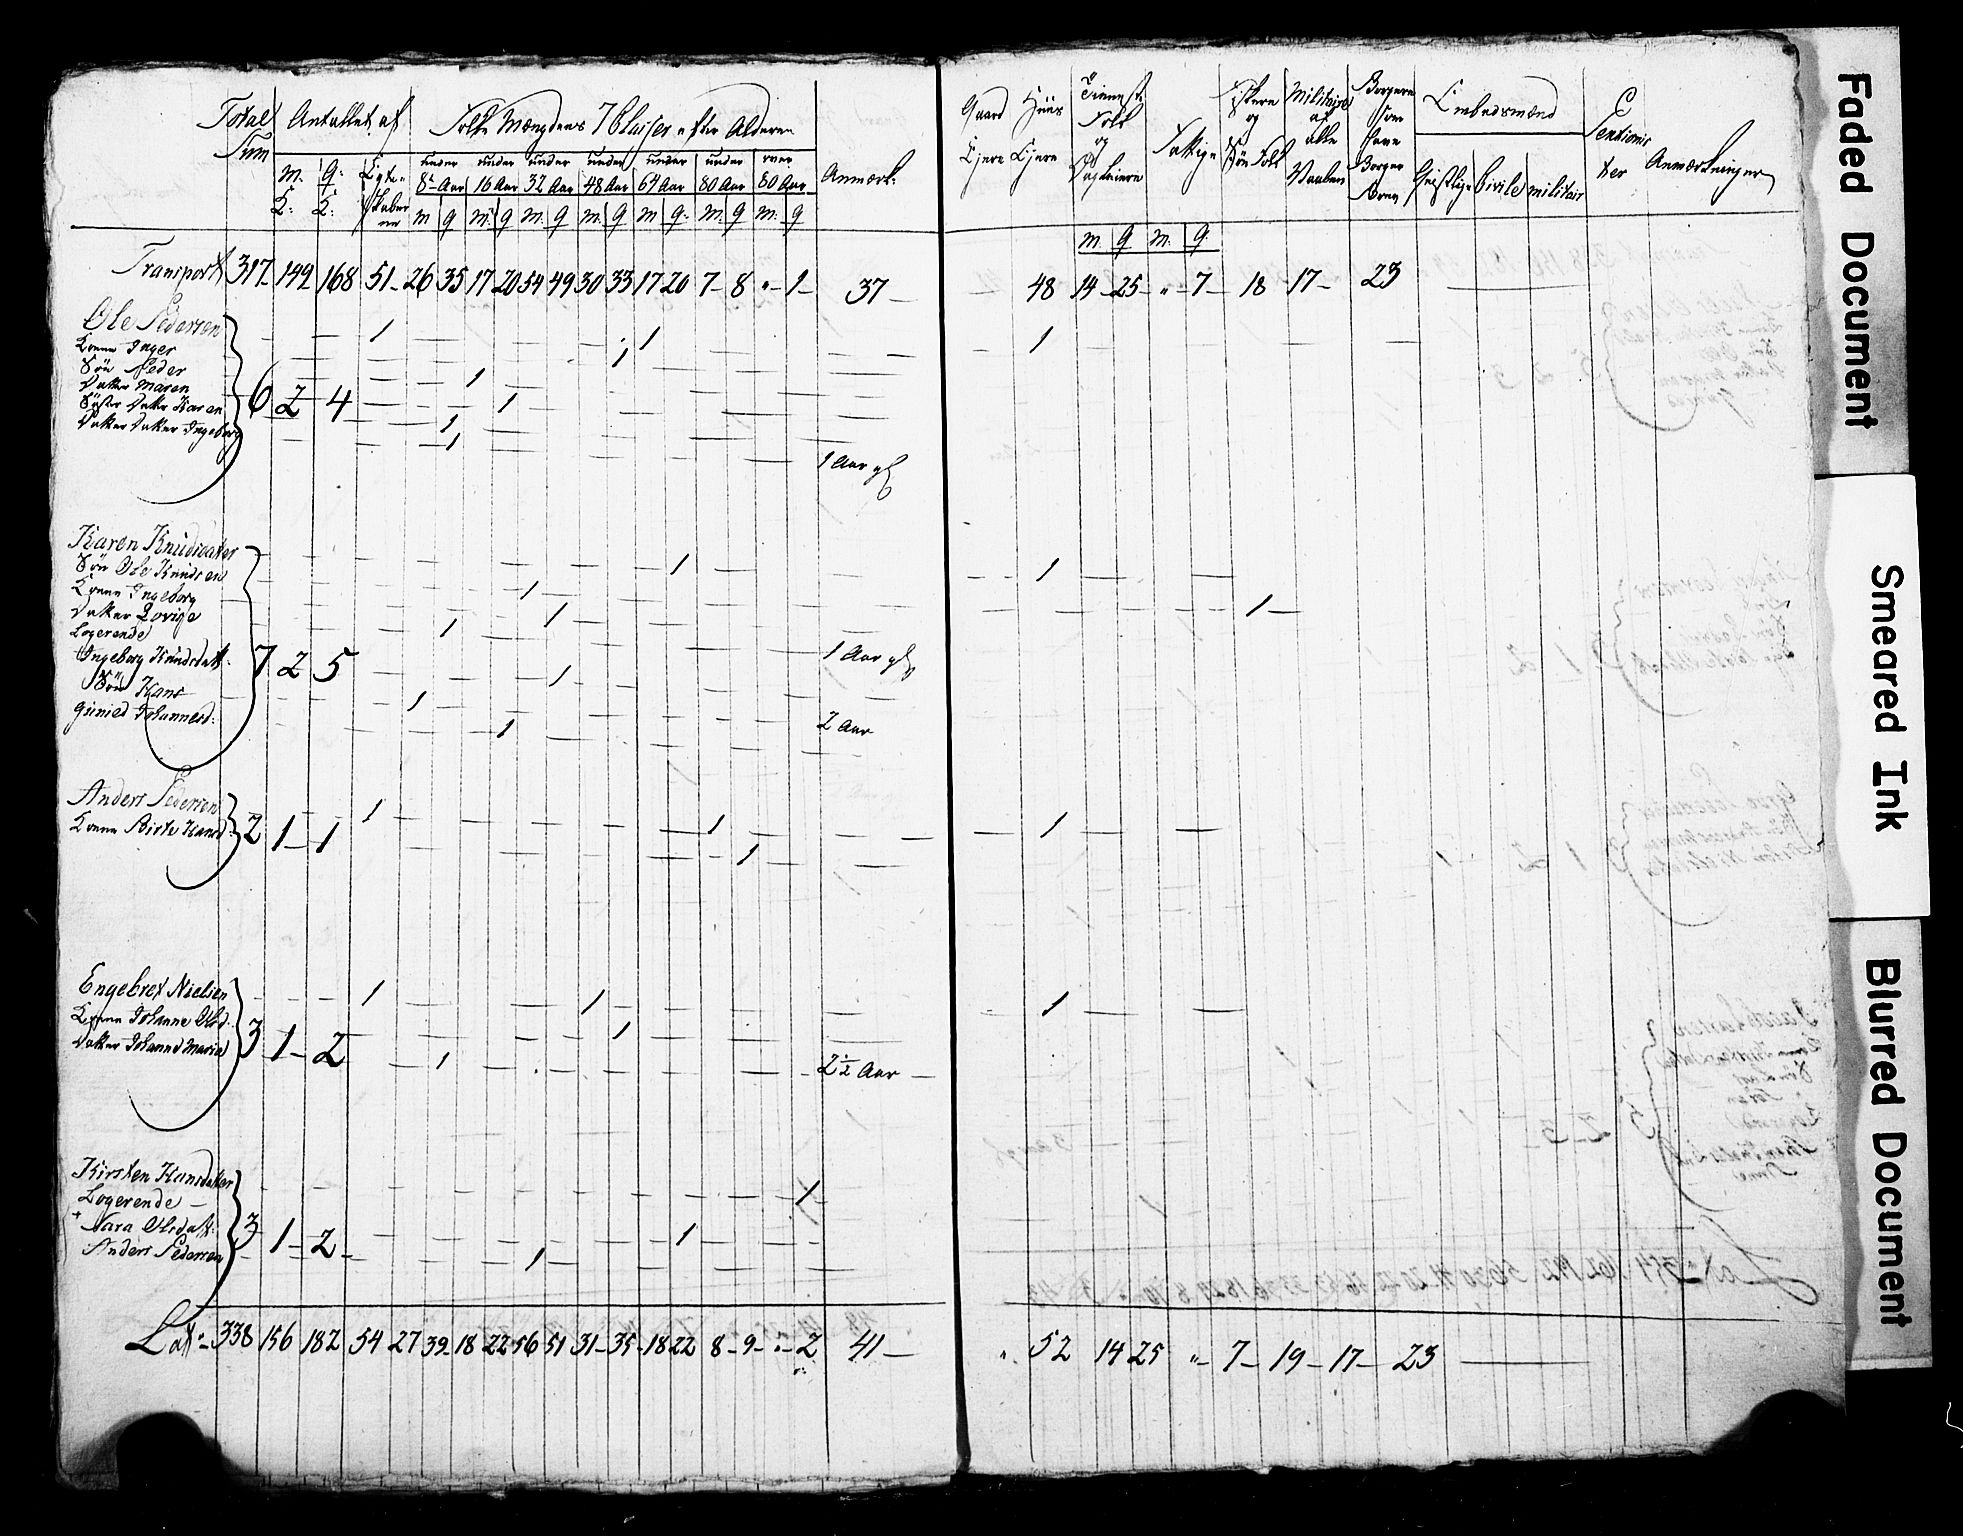 Total Sum
Antallet af
Folke Mængdens 7 Classer efter Alderen
Anmærk:
M: K:
Q: K:
under 8 Aar
under 16 Aar
under 32 Aar
under 48 Aar
under 64 Aar
under 80 Aar
over 80 Aar
m q m: q m: q m: q m q: m: q m: q
Gaard Ejere
Huus Ejere
Tieneste Folk og Dagleiere
Fattige
Fiskere og Søe Folk
Militaire af alle Vaaben
Borgere som have Borger
Embedsmænd
Geistlige
Civile
militair
Anmærkninger
m: q m: q
Transport 317 149 168 51 26 35 17 20 54 49 30 33 17 20 7 8 " 1 37
48 14 25 " 7 18 17 23
Ole Pedersen 1 1 1
Kone Inger 1
Søn Peder 1
Datter Maren 1
6 2 4
Søster Datter Karen 1
Datter Datter Ingeborg 1
1 Aar gl
Karen Knudsdatter 1 1
Søn Ole Knudsen 1 1
Kone Ingeborg 1
Datter Lovise 1 1 Aar gl
Logerende
Ingeborg Knudsdatt: 1
7 2 5
Søn Hans 1 2 Aar
Gunild Johannesd: 1
Anders Pedersen 1 1 1
Kone Birte Hansd: 1
2 1 1
Engebret Nielsen 1 1 1
Kone Johanne Olsd: 1
3 1 2
Datter Johanne Maria 1 2 1/2 Aar
Kirsten Hansdatter 1
Logerende
+ Sara Olsdatt: 1
3 1 2
Anders Pedersen 1
Lat: 338 156 182 54 27 39 18 22 56 51 31 35 18 22 8 9 " 2 41
" 52 14 25 " 7 19 17 23
Faded Document
Smeared Ink
Blurred Document